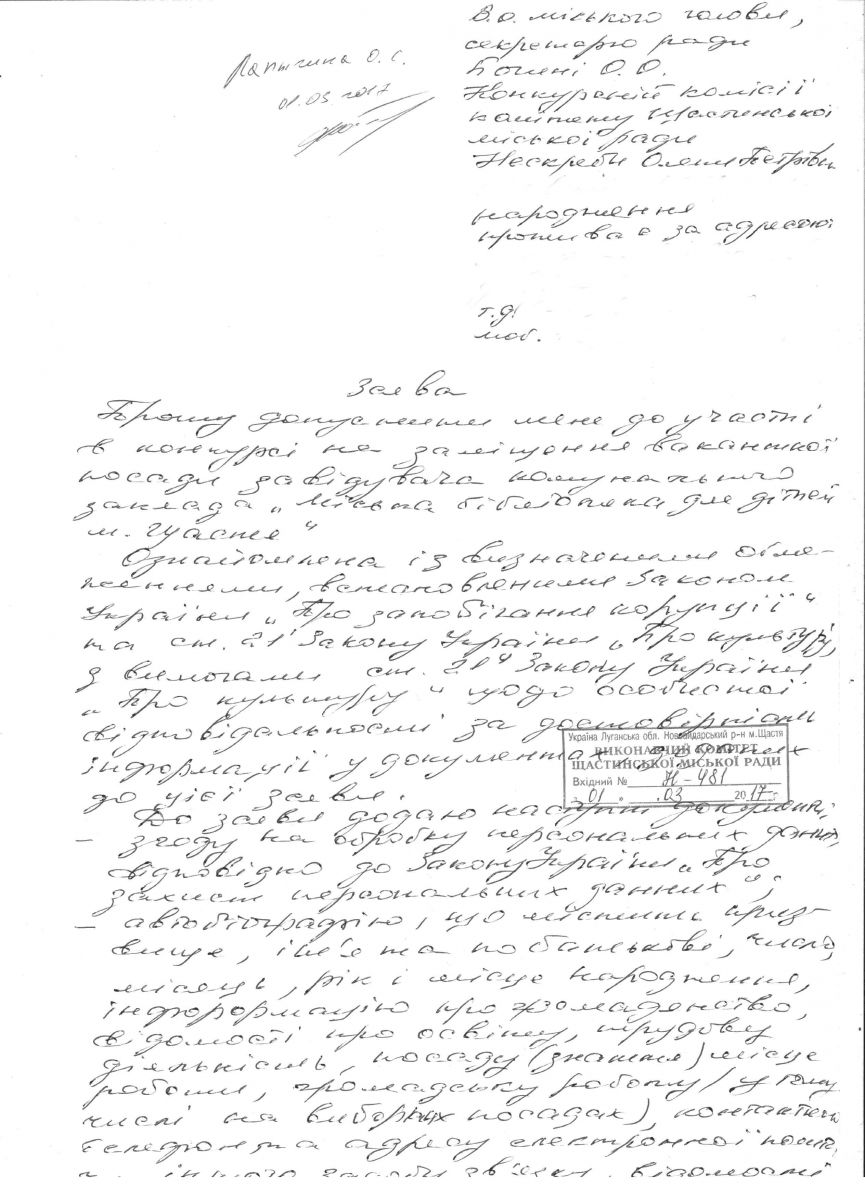 В.о. міського голови,
секретарю ради
О.О.
Конкурсній комісії
комітету Щастинської
міської ради
Нескреби Олени Петрівни
Лапыгина О. С.
01.03 2017
народження
проживає за адресою:
т.д.
моб.
Заява
Прошу допустити мене до участі
в конкурсі на заміщення вакантної
посади завідувача комунального
заклада „Міська бібліотека для дітей
м. Щастя"
Ознайомлена із визначеними обме-
женнями, встановленими Законом
України „Про запобігання корупції"
та ст. 21 Закону України „Про культуру,
з вимогами ст. 21 Закону України
„Про культуру" щодо особистої
відповідальності за достовірність
інформації у документах
до цієї заяви.
Україна Луганська обл. Новоайдарський р-н м.Щастя
ВИКОНАВЧИЙ КОМІТЕТ
ЩАСТИНСЬКОЇ МІСЬКОЇ РАДИ
Вхідний № Н-481
„01" 03 2017 г.
До заяви додаю наступні документи:
– згоду на обробку персональних даних,
відповідно до Закону України „Про
захист персональних данних";
– автобіографію, що містить пріз-
вище, ім'я та по батькові, число,
місяць, рік і місце народження,
інфорормацію про громадянство,
відомості про освіту, трудову
діяльність, посаду (знаття) місце
роботи, громадську роботу (у тому
числі на виборних посадах), контактний
телефон та адресу електронної пошти,
іншого засобу зв'язку, відомості